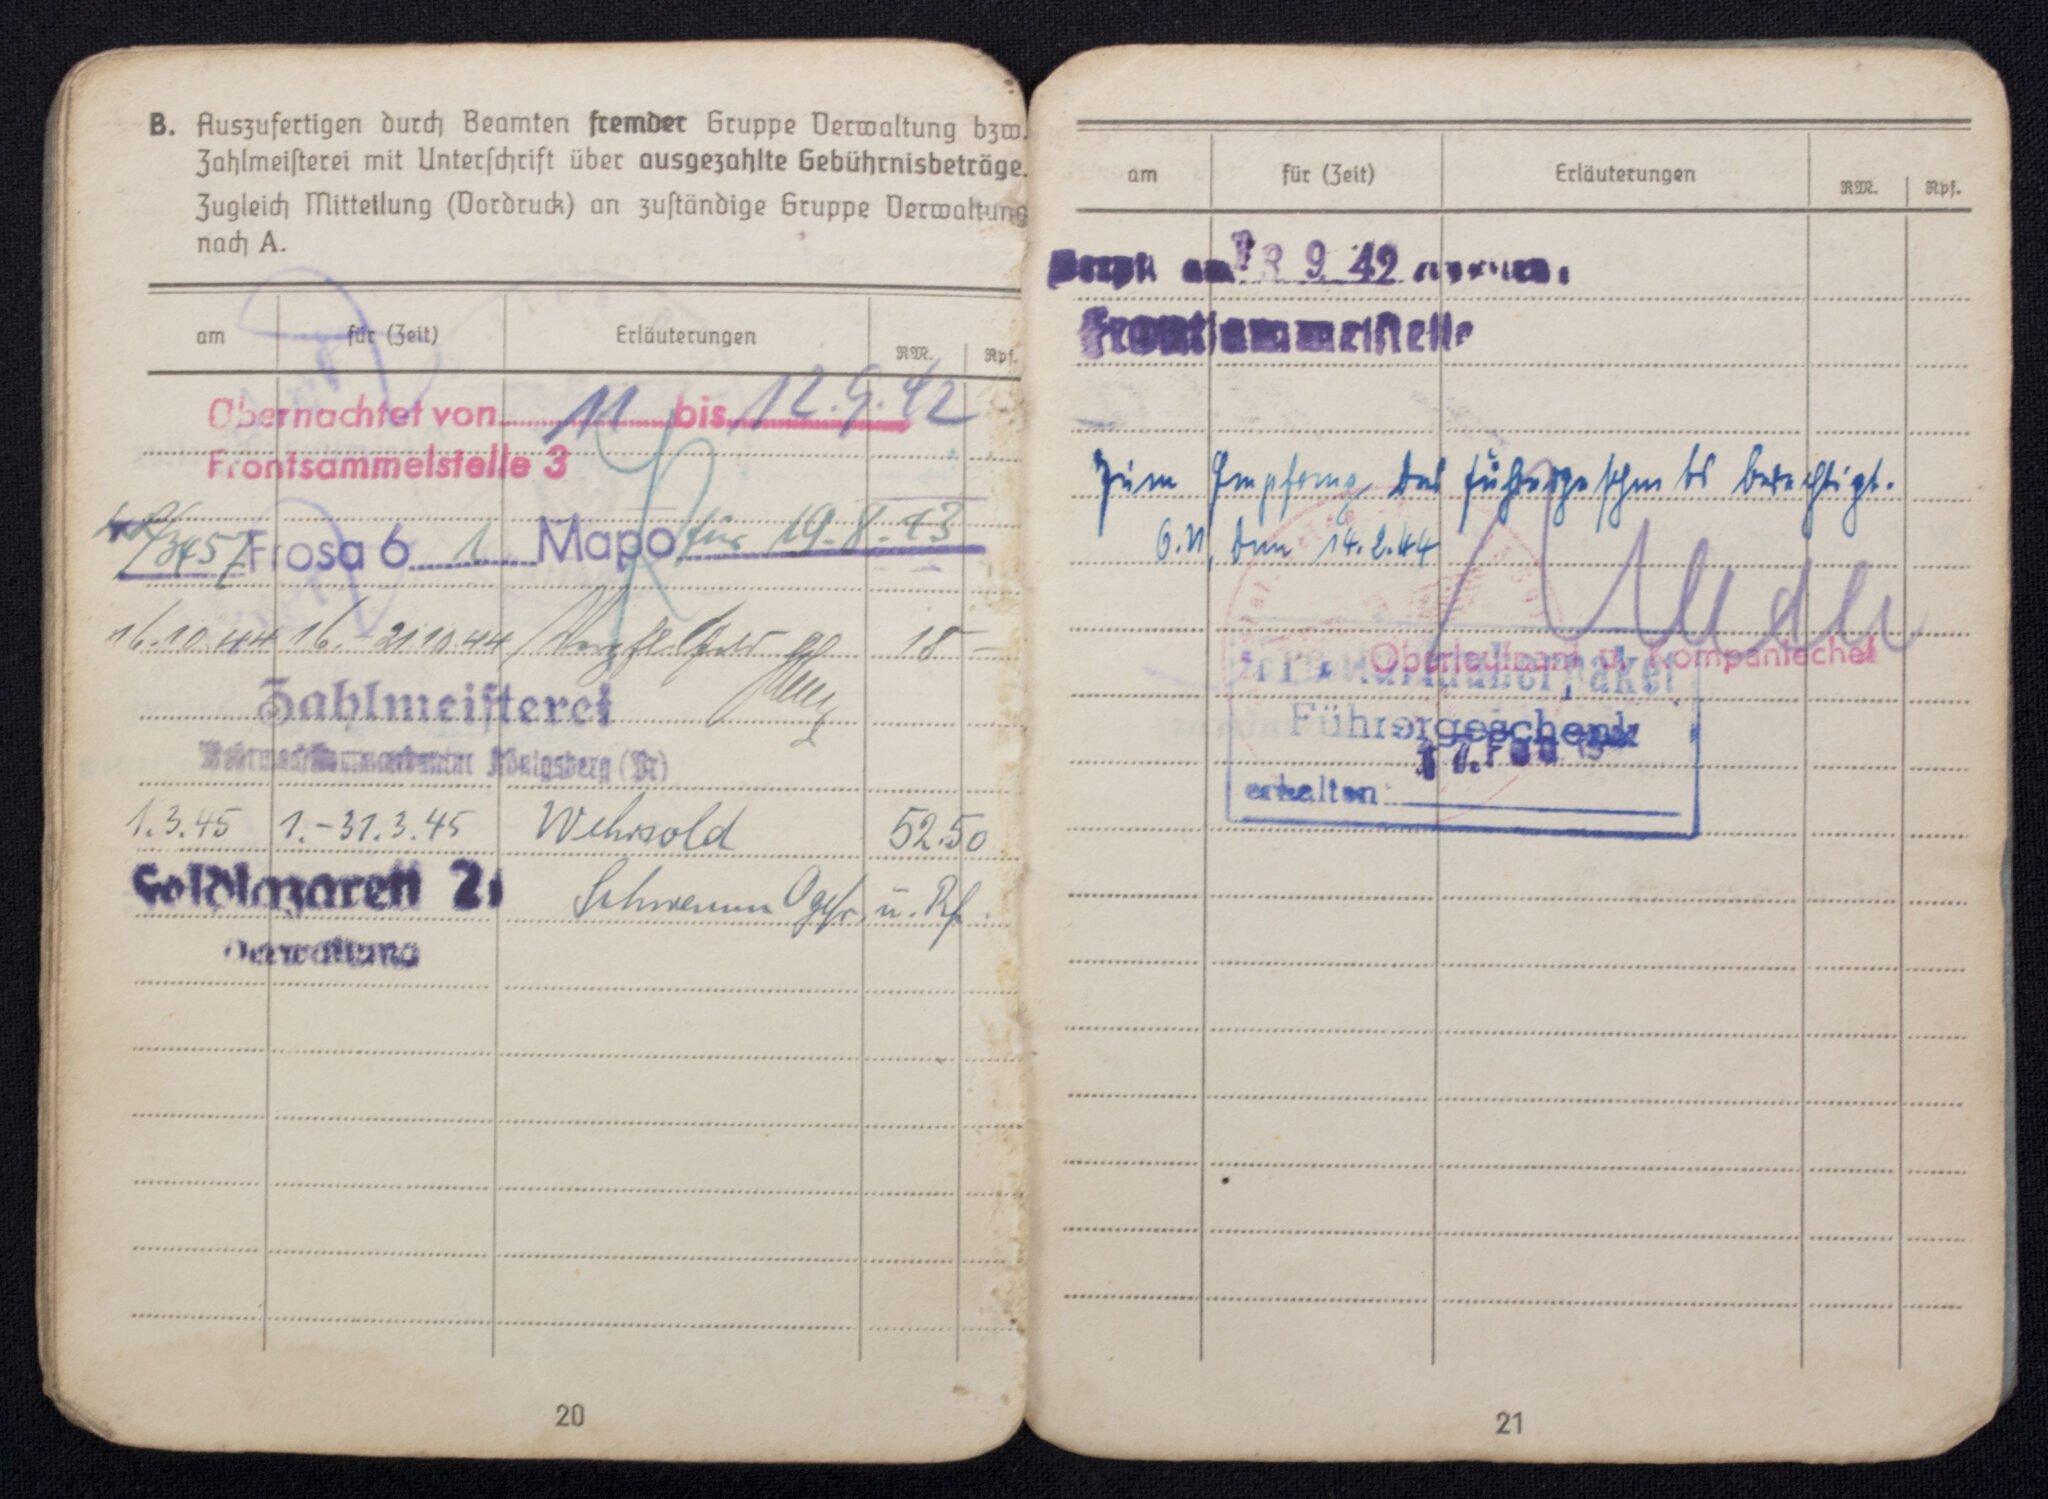 B. Auszufertigen durch Beamten fremder Gruppe Verwaltung bzw.
Zahlmeisterei mit Unterschrift über ausgezahlte Gebührnisbeträge.
Zugleich Mitteilung (Vordruck) an zuständige Gruppe Verwaltung
nach A.
am für (Zeit) Erläuterungen RM. Rpf.
Übernachtet von 11 bis 12.9.42
Frontsammelstelle 3
Frosa 6 1 Mapo für 19.8.43
16.10.44 16.-21.10.44 18 -
Zahlmeisterei
Wehrmachtkommandantur Königsberg (Pr)
1.3.45 1.-31.3.45 Wehrsold 52.50
Feldlazarett 2.
Ogefr. u. Rf.
Verwaltung
20
am für (Zeit) Erläuterungen RM. Rpf.
am 9 42
Frontsammelstelle
Zum Empfang des Führergeschenks berechtigt.
O.U., den 14.2.44
Oberleutnant u. Kompaniechef
Führergeschenk
erhalten:
21